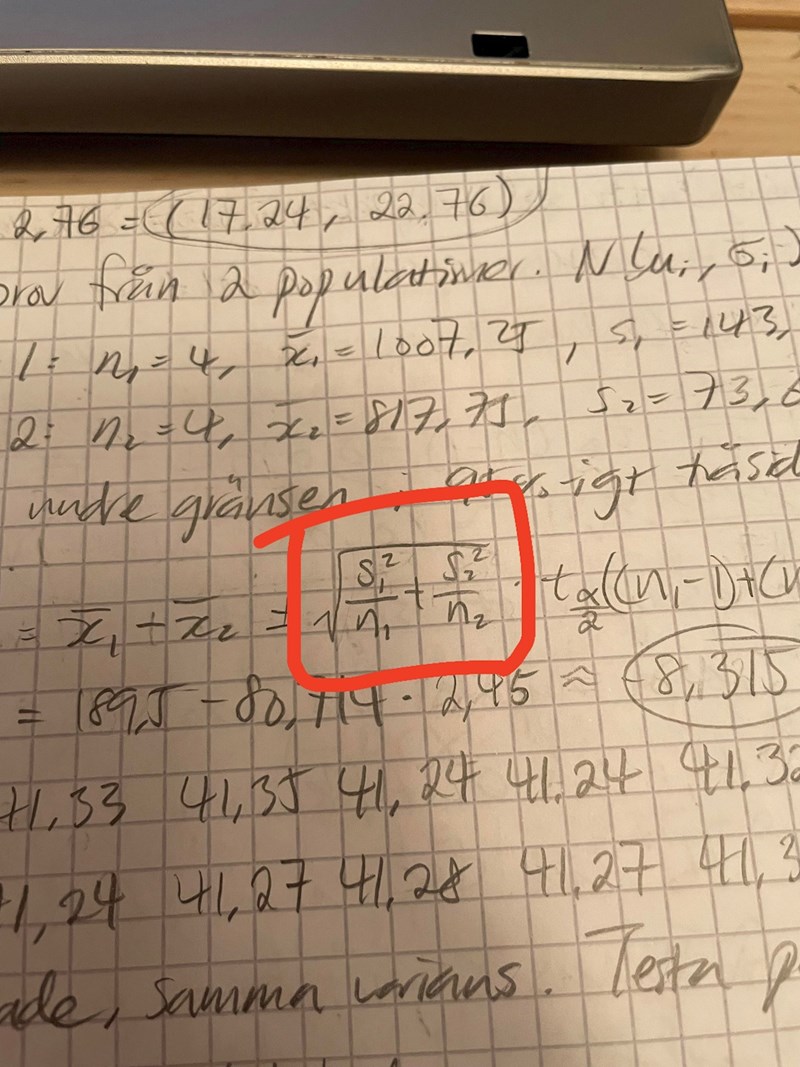 2,76 = (17.24, 22.76)
prov från 2 populationer. N(μi, σi)
1: n₁ = 4, x̄₁ = 1007,25, s₁ = 143,
2: n₂ = 4, x̄₂ = 817,75, s₂ = 73,6
undre gränsen
= x̄₁ - x̄₂ ± √(s₁²/n₁ + s₂²/n₂) · t α/2 ((n₁-1)+(n
= 189,5 - 80,714 · 2,45 ≈ -8,315
41,33 41,35 41,24 41.24 41.32
41,24 41,27 41,28 41,27 41,3
ade, samma varians. Testa p